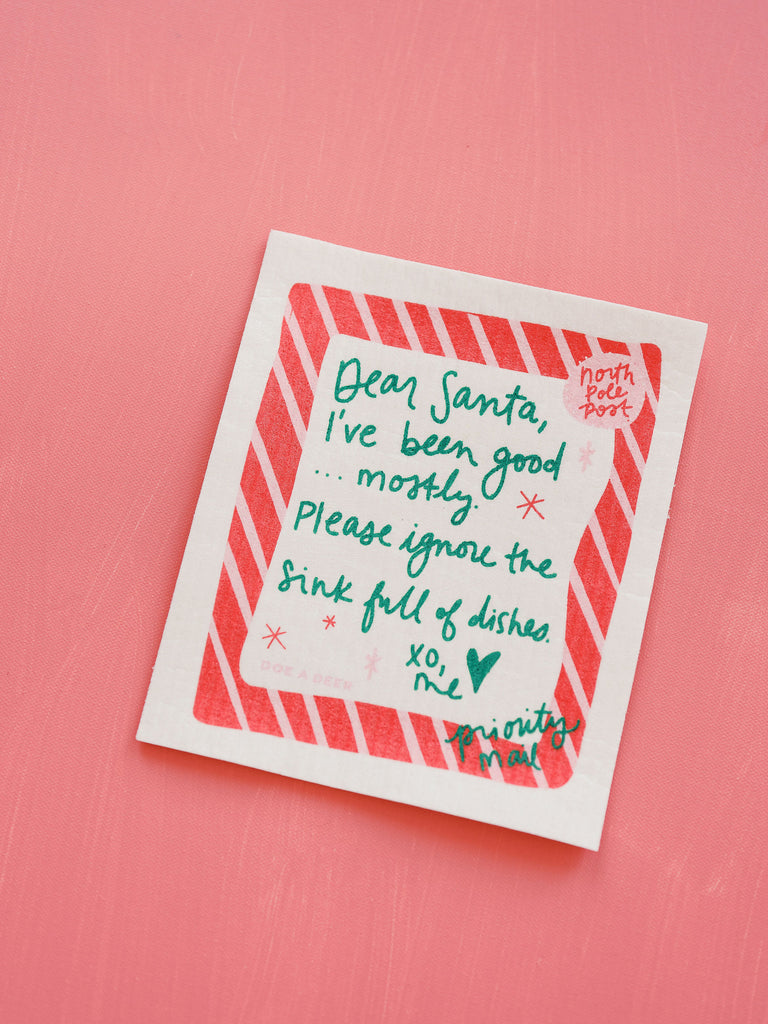 north
pole
post
Dear Santa,
I've been good
... mostly.
Please ignore the
sink full of dishes.
xo,
me
DOE A DEER
priority
mail